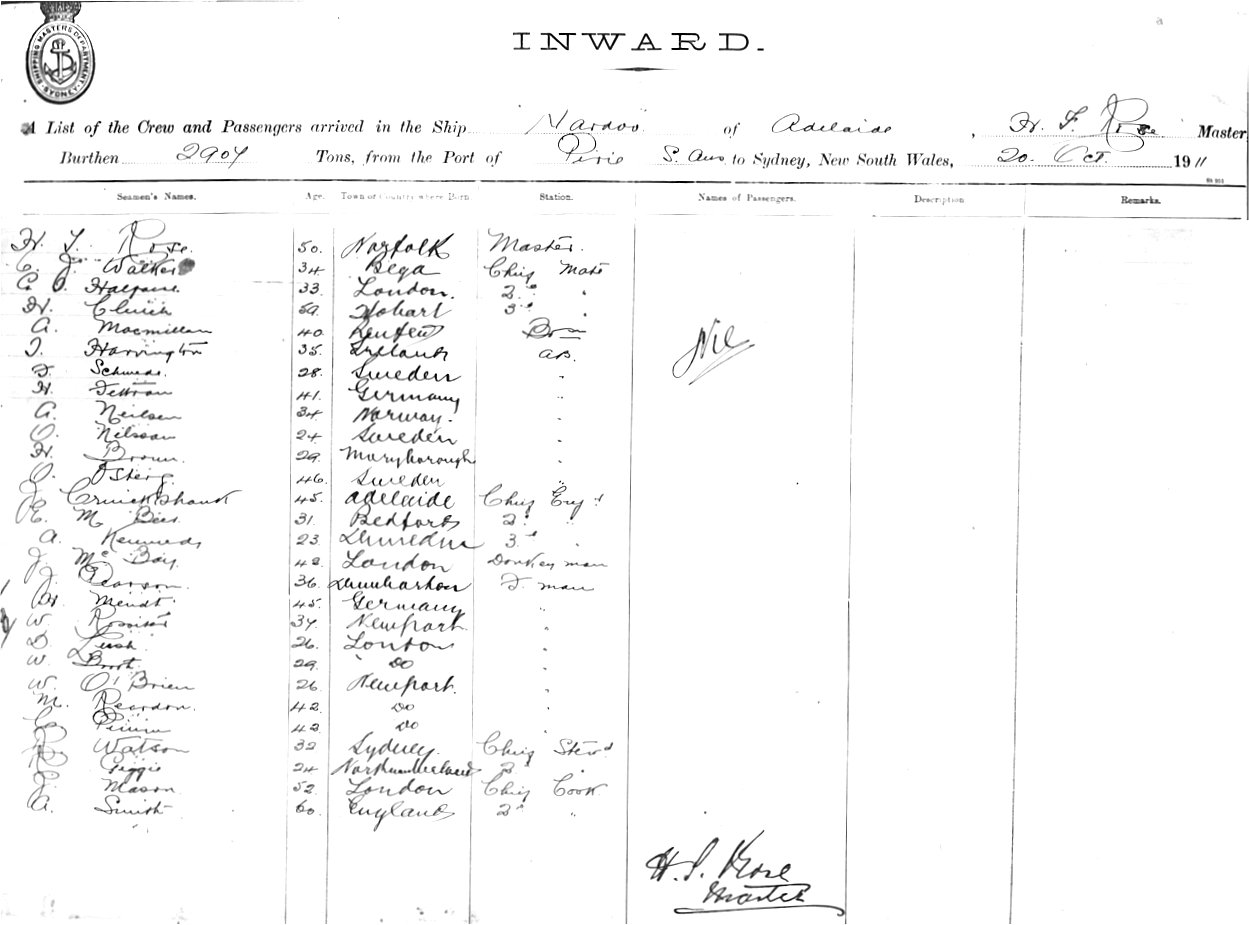 SHIPPING MASTERS DEPARTMENT SYDNEY
INWARD.
A List of the Crew and Passengers arrived in the Ship Nardoo of Adelaide, H. S. Rose Master
Burthen 2904 Tons, from the Port of Pirie S. Aus to Sydney, New South Wales, 20. Oct 1911
Seamen's Names. Age. Town or Country where Born Station. Names of Passengers. Description Remarks.
H. S. Rose 50. Norfolk Master.
C. J. Walker 34 Bega Chief Mate
33. London. 2nd "
H. 59. Hobart 3rd
A. Macmillan 40. Bosn
Nil
T. Harrington 35. Ireland AB.
28. Sweden "
H. 41. Germany "
A. Neilsen 34 Norway. "
O. Nilsson 24 Sweden "
H. Brown. 29. Maryborough "
O. Osterg. 46. Sweden "
J. Cruickshank 45. Adelaide Chief Eng'r
E. M. 31. Bedford 2nd "
A. Kennedy 23 Dunedin 3rd "
J. McBay. 42. London Donkeyman
J. Pearson. 36. F. man
45. Germany "
W. 37 Newport "
D. Lush 26. London "
W. 29. Do "
W. O'Brien 26 Newport. "
M. Reardon. 42. Do "
42. Do "
Watson 32 Sydney. Chief Stew'd
24 Northumberland 2nd "
J. Mason. 52. London Chief Cook
A. Smith 60. England 2nd "
H. S. Rose
Master